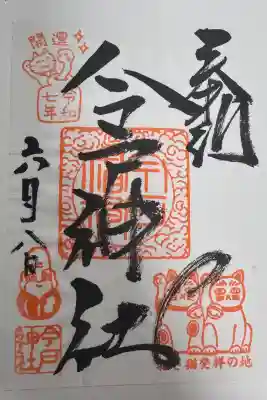 奉拝
今戸神社
開運
令和
七年
六月八日
今戸
神社
猫発祥の地